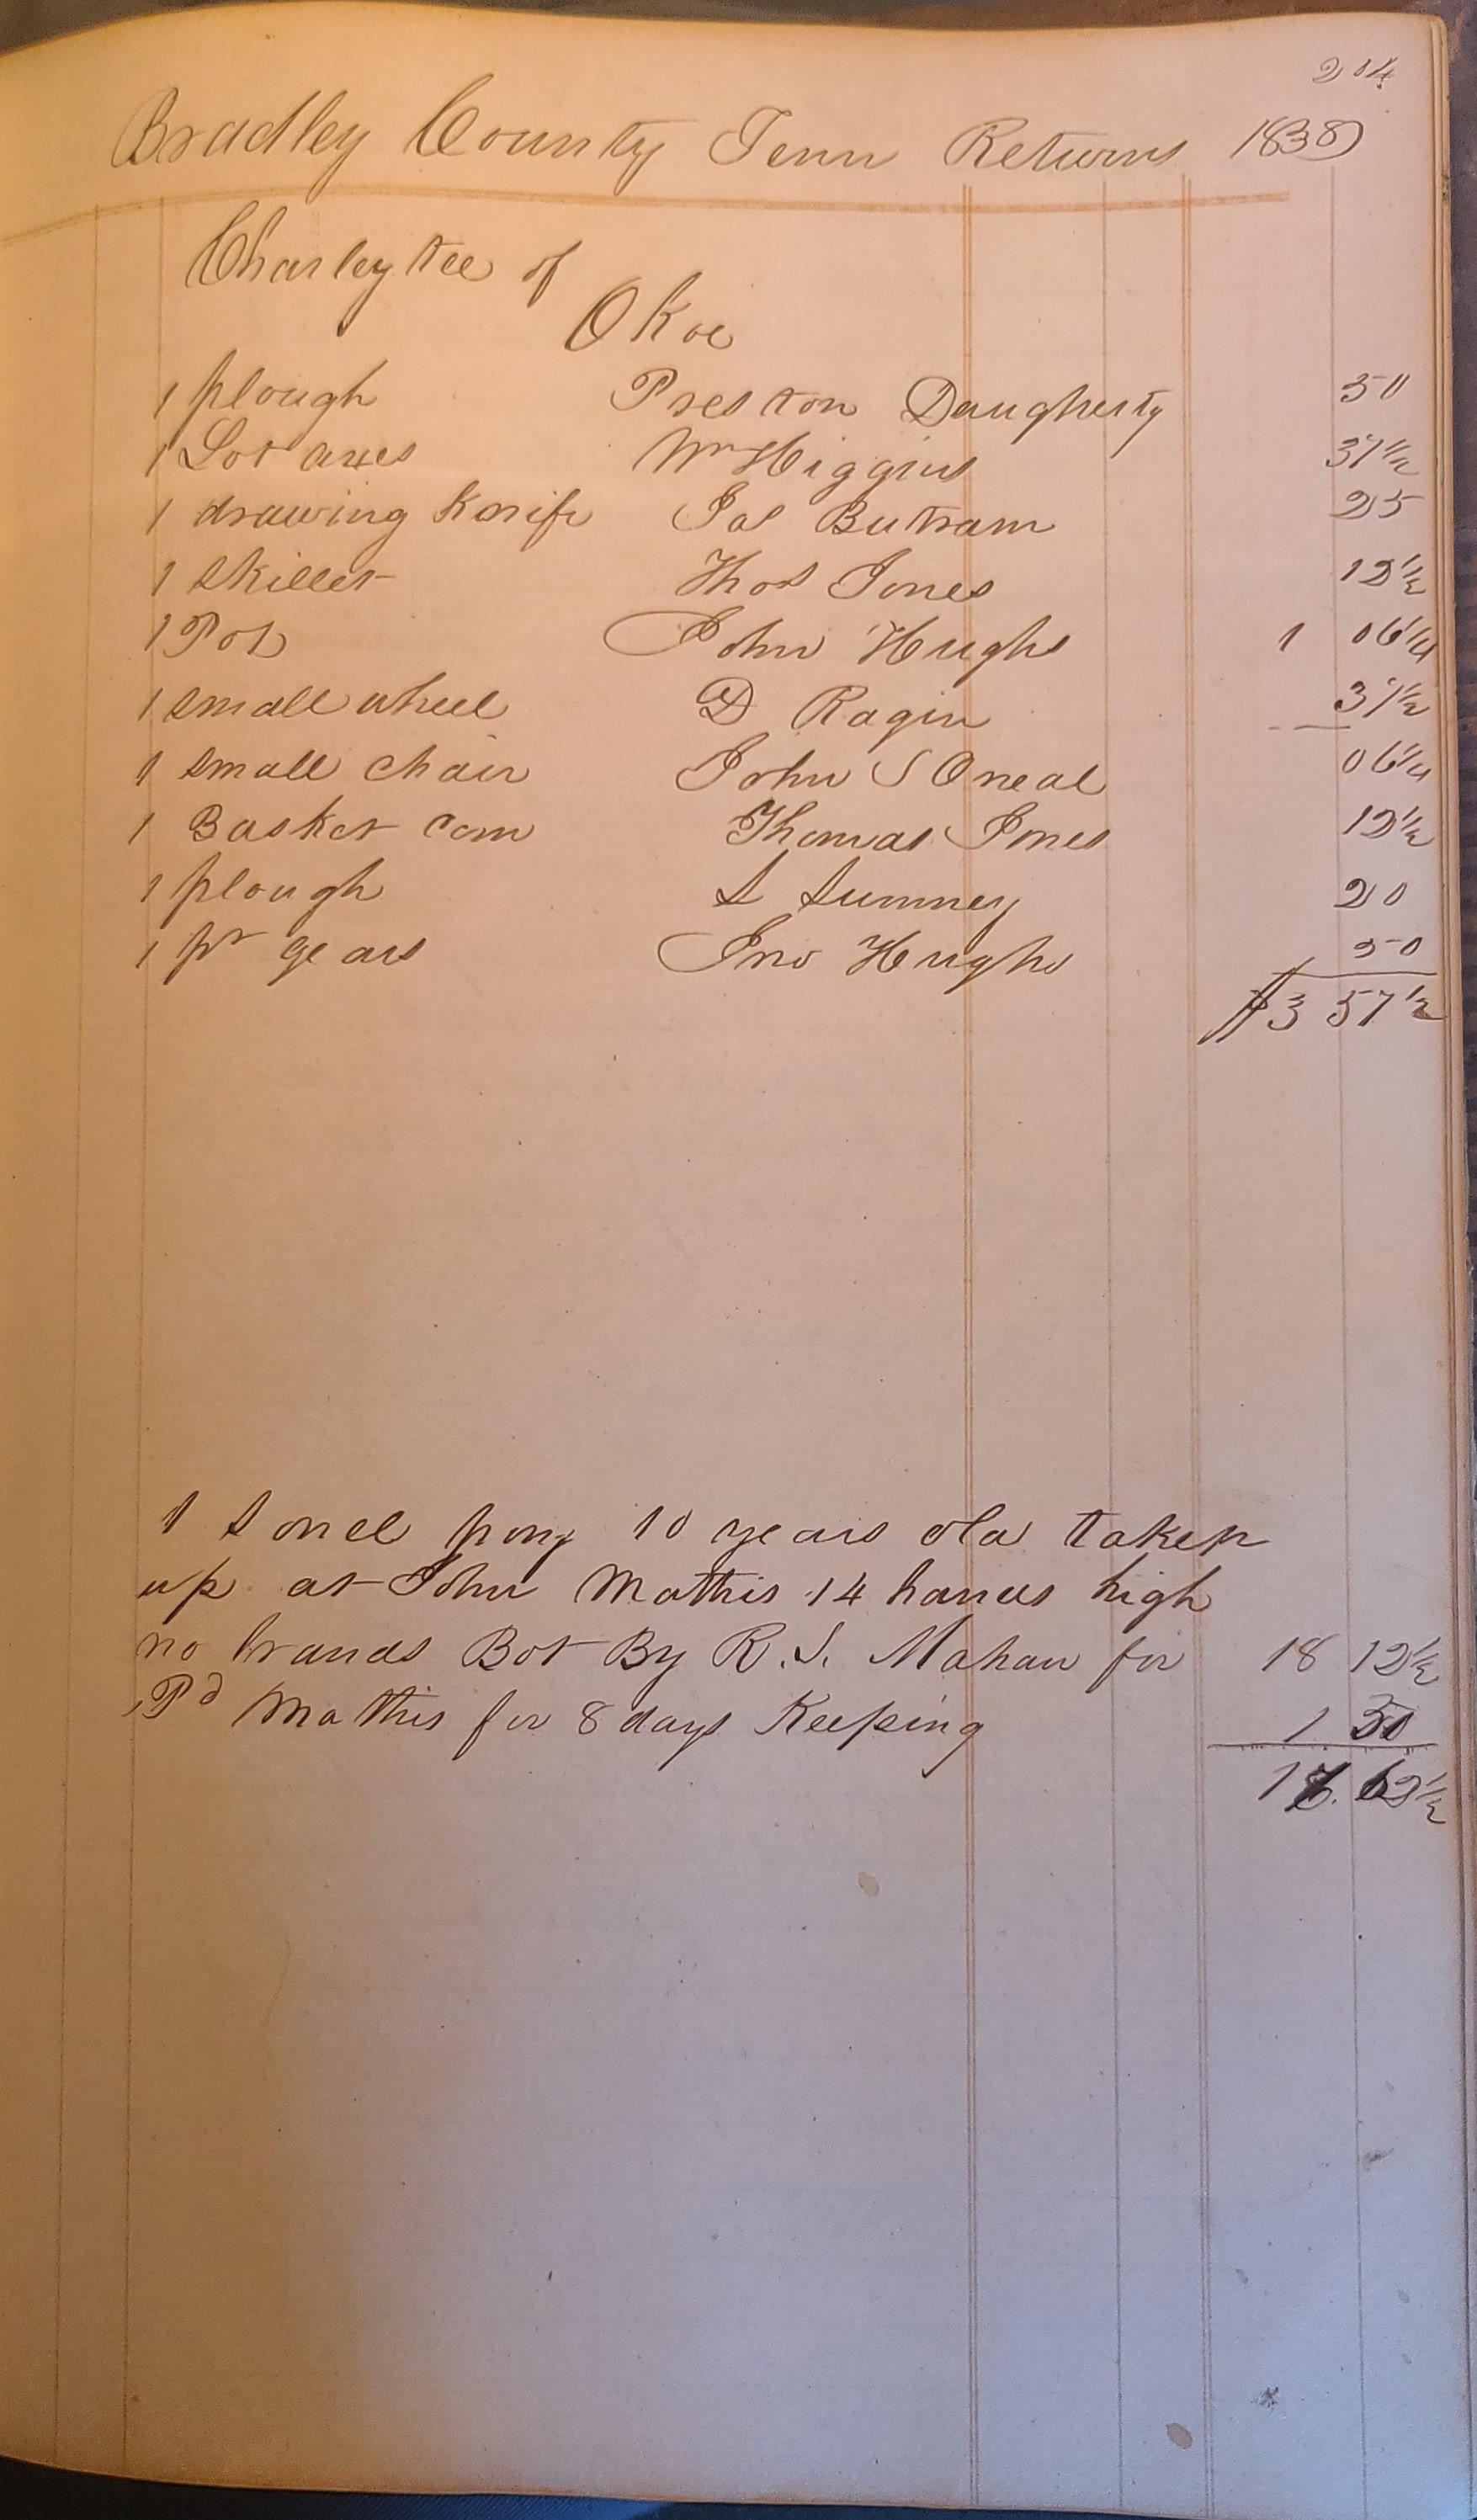 204
Bradley County Tenn Returns 1838
Charleytee of
Okoe
1 plough Preston Daugherty 50
1 Lot axes Wm Higgins 37½
1 drawing Knife Jas Butram 25
1 skillet Thos Jones 12½
1 Pot John Hughs 1 06¼
1 small wheel D Ragin 37½
1 small chair John S Oneal 06¼
1 Basket corn Thomas Jones 12½
1 plough S Sumney 20
1 pr gears Jno Hughs 50
$3 57½
1 Sorrel pony 10 years old taken
up at John Mathis 14 hands high
no brands Bot By R. S. Mahan for 18 12½
Pd Mathis for 8 days Keeping 1 50
16.62½